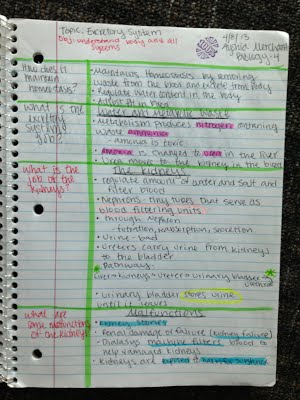 Topic: Excretory System
Obj: understand body and all systems
4/8/13
Biology-4
How does it maintain homeostasis?
• Maintains homeostasis by removing
waste from the blood and excrete from body
• Regulate water content in the body
• Adjust pH in blood
What is the excretory systems job?
Water and Metabolic Waste
• Metabolism produces nitrogen containing
waste ammonia
- ammonia is toxic
• Ammonia is changed to urea in the liver
• Urea moves to the kidney in the blood
What is the job of the kidneys?
The kidneys
• regulate amount of water and salt and
filter blood
• Nephrons - tiny tubes that serve as
blood filtering units
• through Nephron
- filtration, reabsorption, secretion
• Urine -
• Ureters carry urine from kidneys
to the bladder
• Pathway:
liver→kidneys→ureter→urinary bladder→
urethra
• Urinary bladder stores urine
until it leaves
what are some malfunctions of the kidneys
Malfunctions
• Kidney stones
• Renal damage or failure (kidney failure)
• Dialysis machine filters blood to
help damaged kidneys
• Kidneys are exposed to harmful substances